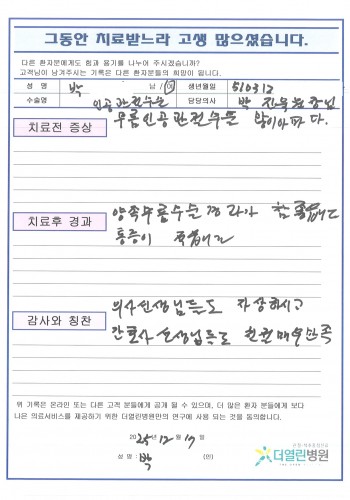 그동안 치료받느라 고생 많으셨습니다.
다른 환자분에게도 힘과 용기를 나누어 주시겠습니까?
고객님이 남겨주시는 기록은 다른 환자분들의 희망이 됩니다.
성 명 박 남 / 여 생년월일 510312
수술명 인공관절수술 담당의사 박 진욱 원장님
치료전 증상 무릎인공관절수술 많이아파다.
치료후 경과 양쪽무릎수술 경과가 참 좋습니다
통증이
감사와 칭찬 의사선생님들도 자상하시고
간호사선생님들도 친절 매우만족
위 기록은 온라인 또는 다른 고객 분들에게 공개 될 수 있으며, 더 많은 환자 분들에게 보다
나은 의료서비스를 제공하기 위한 더열린병원만의 연구에 사용 되는 것을 동의합니다.
2025. 12. 17
성 명 : 박 (인)
더열린병원